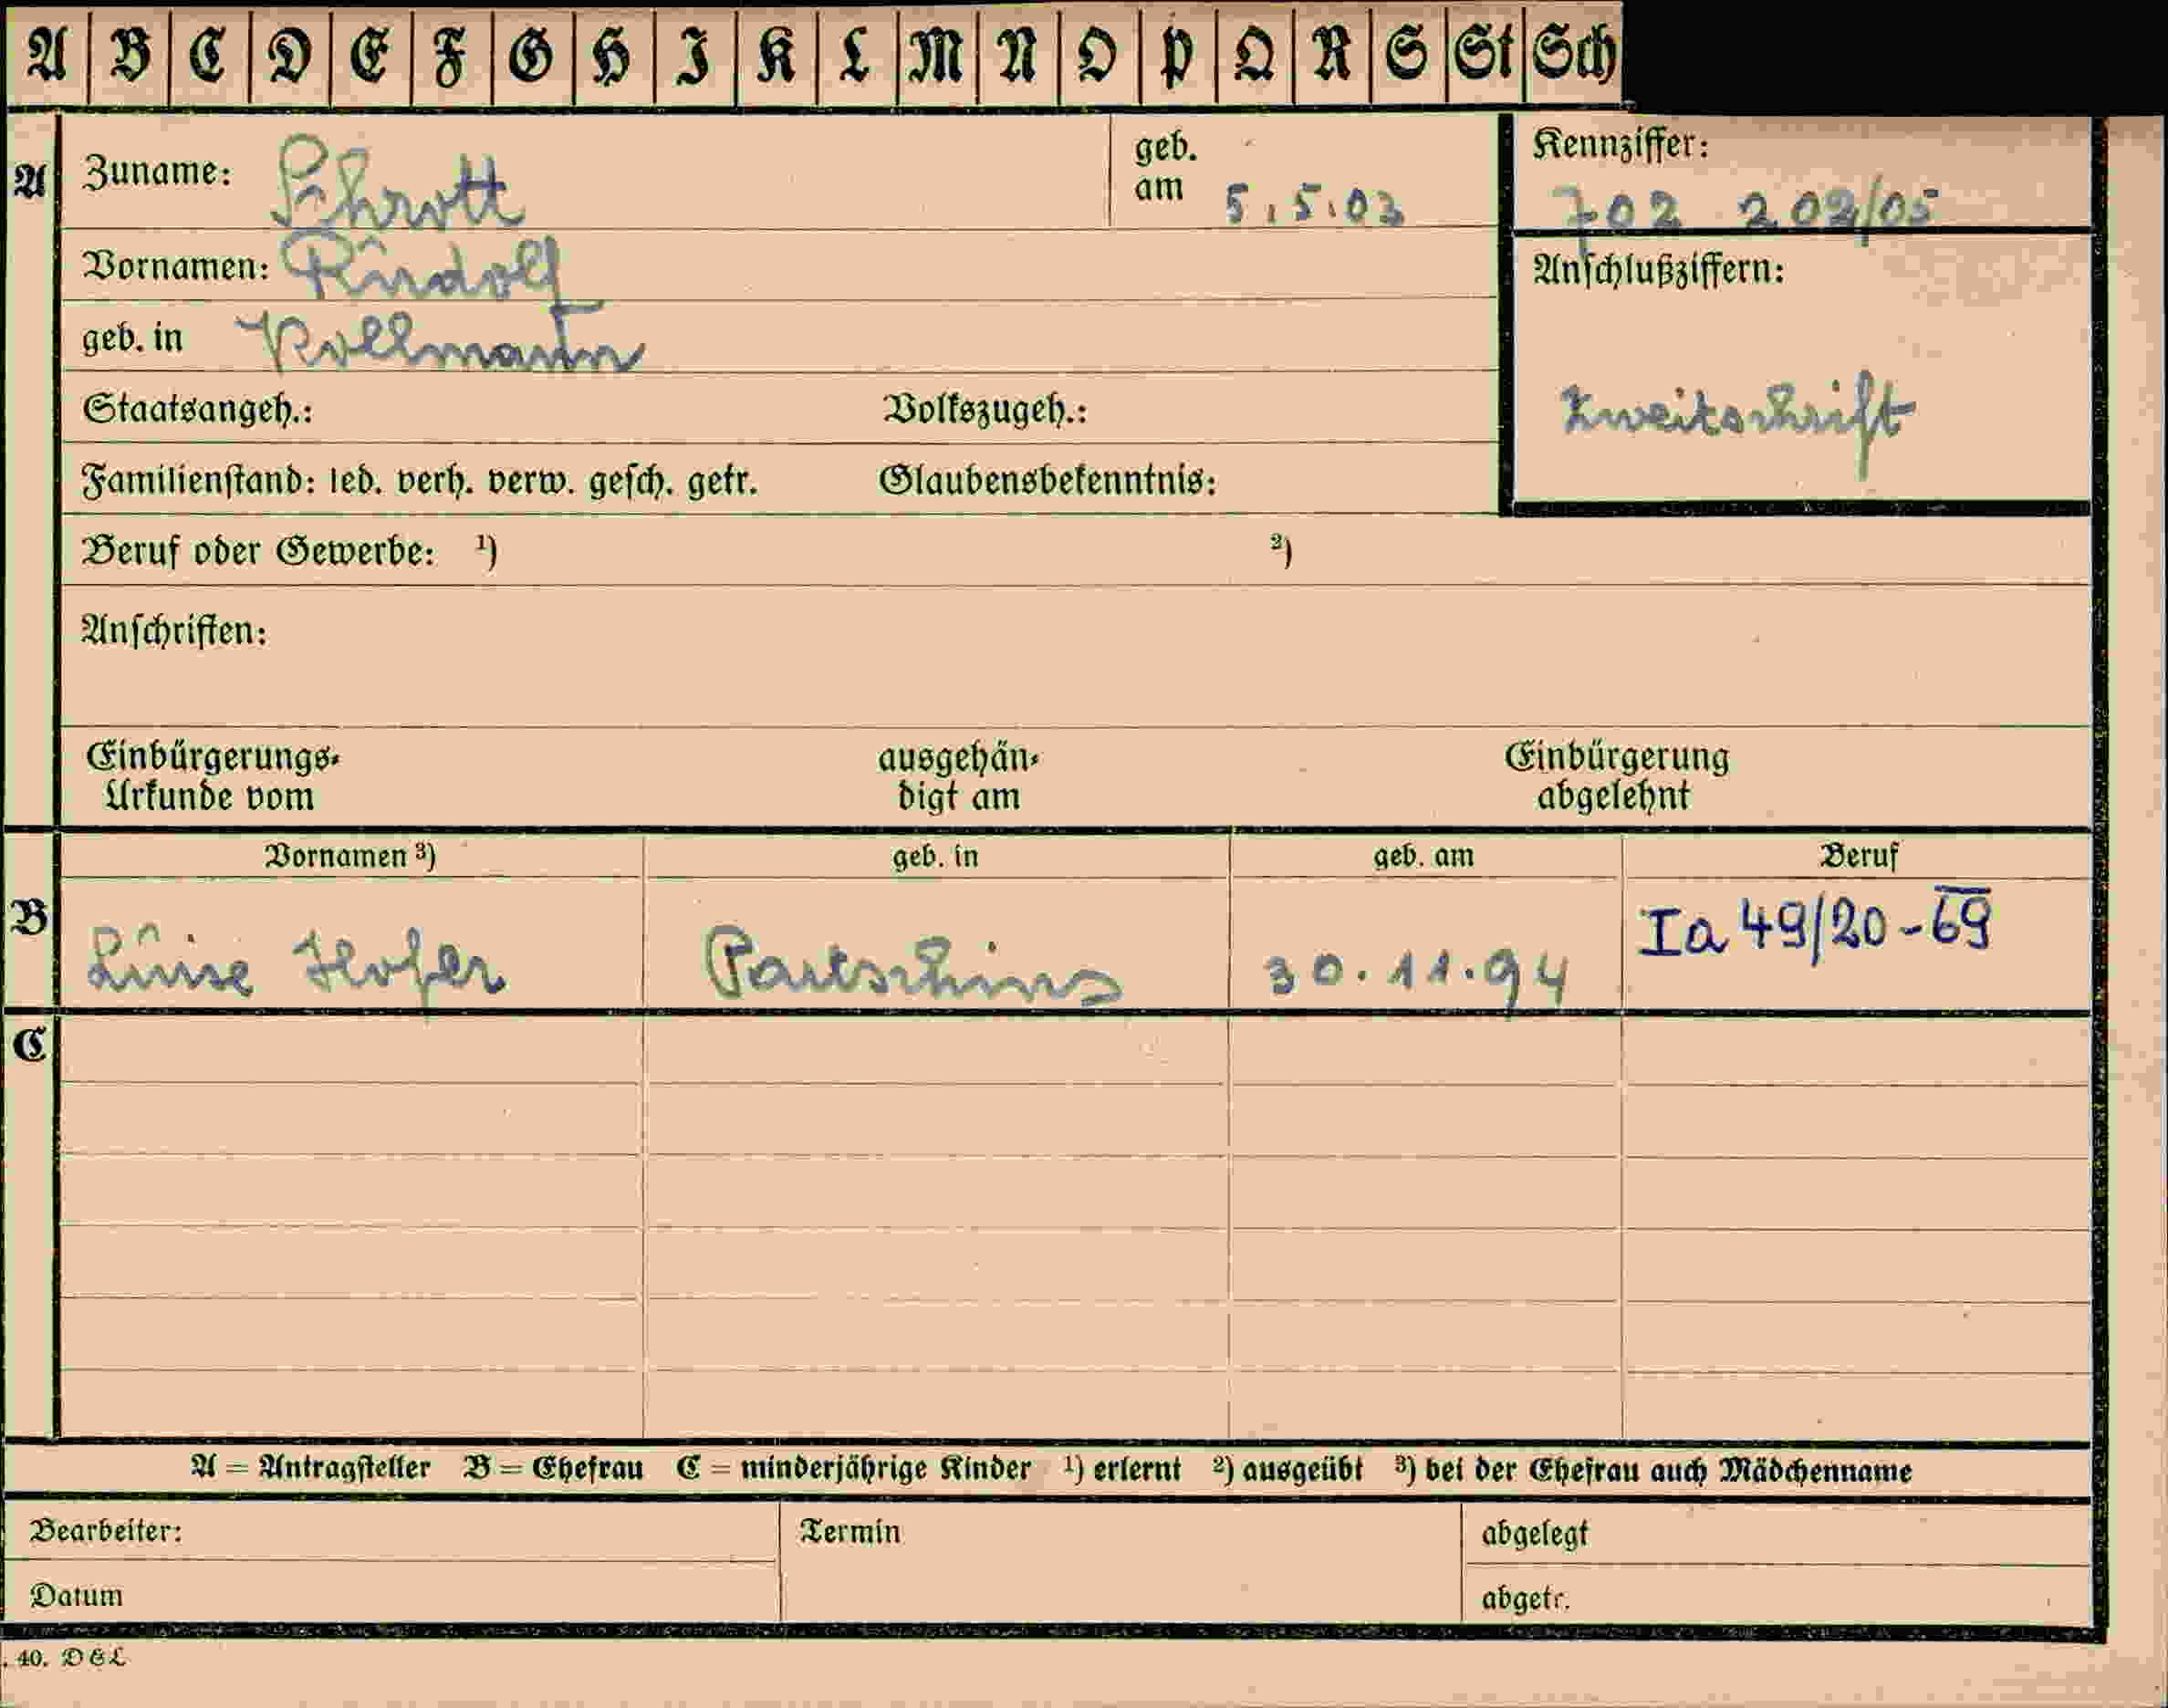 A B C D E F G H I K L M N O P Q R S St Sch
A Zuname: Schrott geb. am 5.5.03 Kennziffer: 702 202/05
Vornamen: Rudolf Anschlußziffern:
geb. in Kollmann
Zweitschrift
Staatsangeh.: Volkszugeh.:
Familienstand: led. verh. verw. gesch. getr. Glaubensbekenntnis:
Beruf oder Gewerbe: ¹) ²)
Anschriften:
Einbürgerungs- ausgehän- Einbürgerung
Urkunde vom digt am abgelehnt
Vornamen ³) geb. in geb. am Beruf
B Luise Hofer Partschins 30.11.94 Ia 49/20-69
C
A = Antragsteller B = Ehefrau C = minderjährige Kinder ¹) erlernt ²) ausgeübt ³) bei der Ehefrau auch Mädchenname
Bearbeiter: Termin abgelegt
Datum abgetr.
. 40. D & L